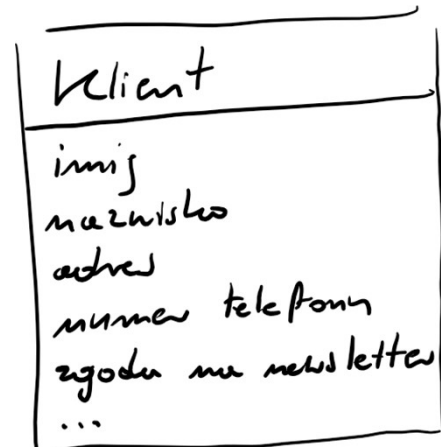 Klient
imię
nazwisko
adres
numer telefonu
zgoda na newsletter
...